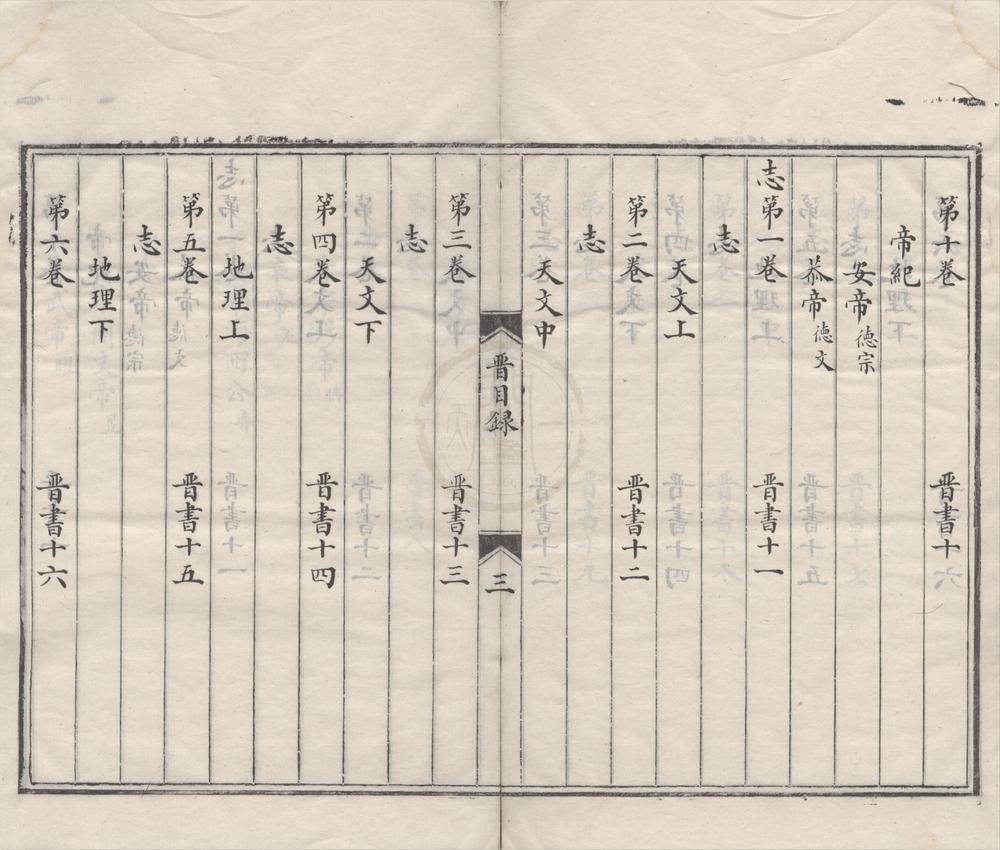 第十卷 晋書十
帝紀
安帝德宗
恭帝德文
志第一卷 晋書十一
志
天文上
第二卷 晋書十二
志
天文中
晋目録 三
第三卷 晋書十三
志
天文下
第四卷 晋書十四
志
地理上
第五卷 晋書十五
志
地理下
第六卷 晋書十六